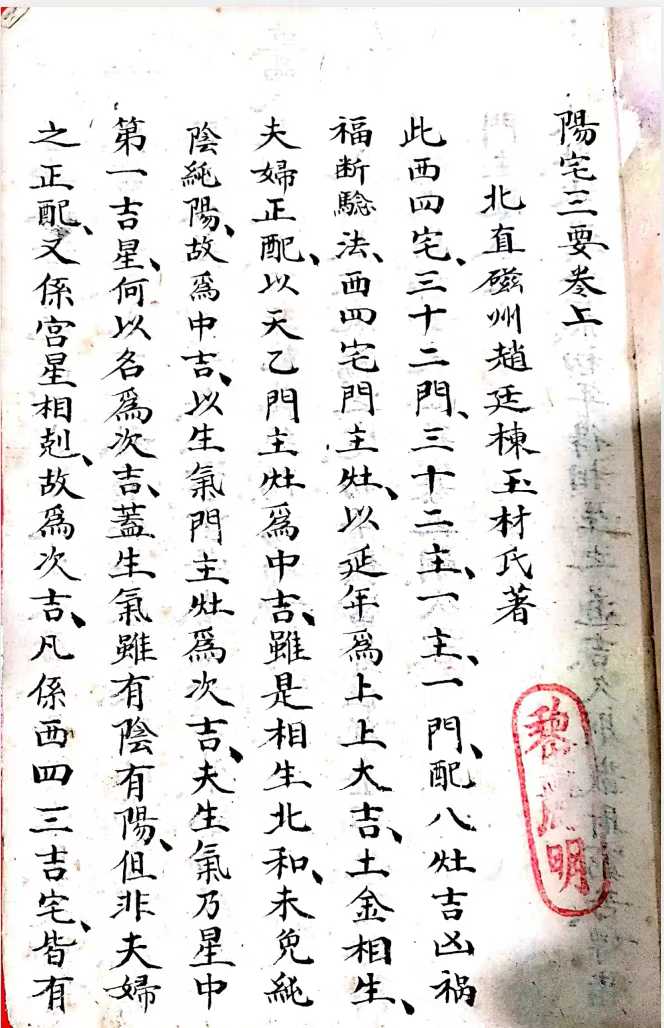 陽宅三要卷上
北直磁州趙廷棟玉材氏著
此西四宅、三十二門、三十二主、一主、一門、配八灶吉凶禍
福断驗法、西四宅門主灶、以延年爲上上大吉、土金相生、
夫婦正配、以天乙門主灶爲中吉、雖是相生北和、未免純
陰純陽、故爲中吉、以生氣門主灶爲次吉、夫生氣乃星中
第一吉星、何以名爲次吉、蓋生氣雖有陰有陽、但非夫婦
之正配、又係宫星相剋、故爲次吉、凡係西四三吉宅、皆有
黎 明